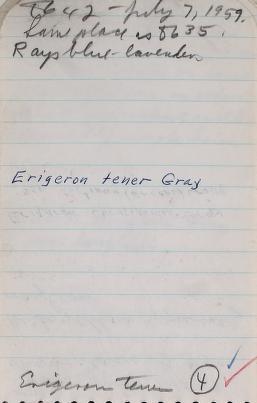 8642 - July 7, 1959.
Same place as 8635.
Rays blue-lavender
Erigeron tener Gray
Erigeron tener 4